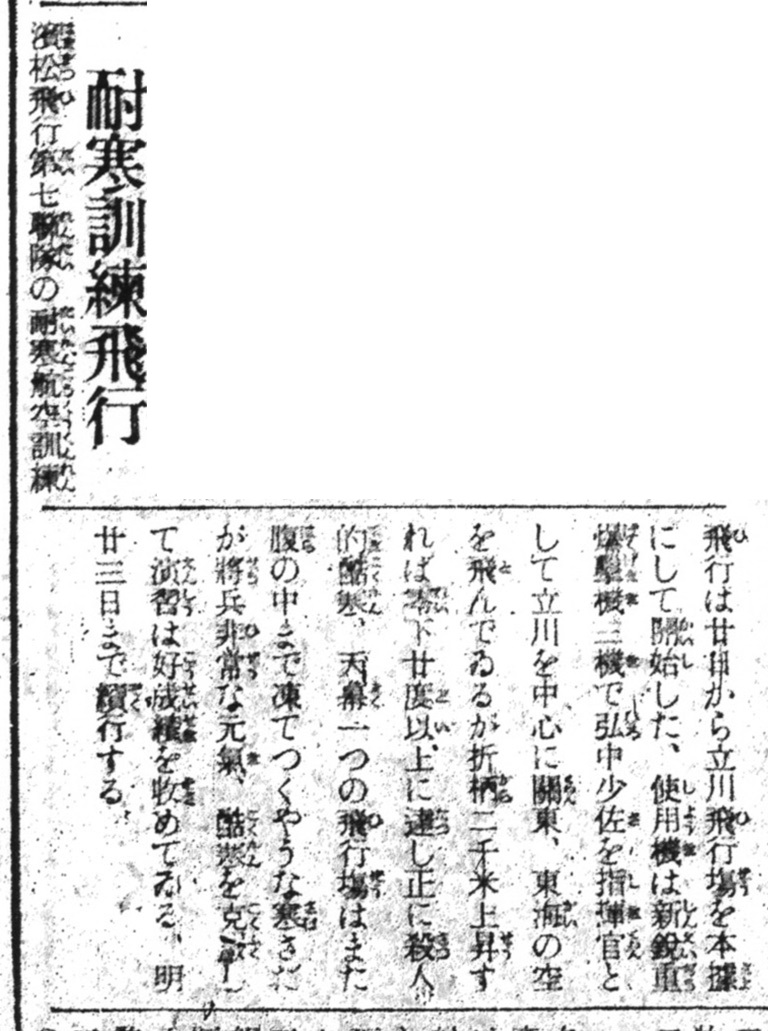 耐寒訓練飛行
濱松飛行第七聯隊の耐寒航空訓練
飛行は廿日から立川飛行場を本據
にして開始した、使用機は新鋭重
爆撃機三機で弘中少佐を指揮官と
して立川を中心に關東、東海の空
を飛んでゐるが折柄二千米上昇す
れば零下廿度以上に達し正に殺人
的酷寒、天幕一つの飛行場はまた
腹の中まで凍てつくやうな寒さだ
が將兵非常な元氣、酷寒を克服し
て演習は好成績を收めてゐる、明
廿三日まで續行する